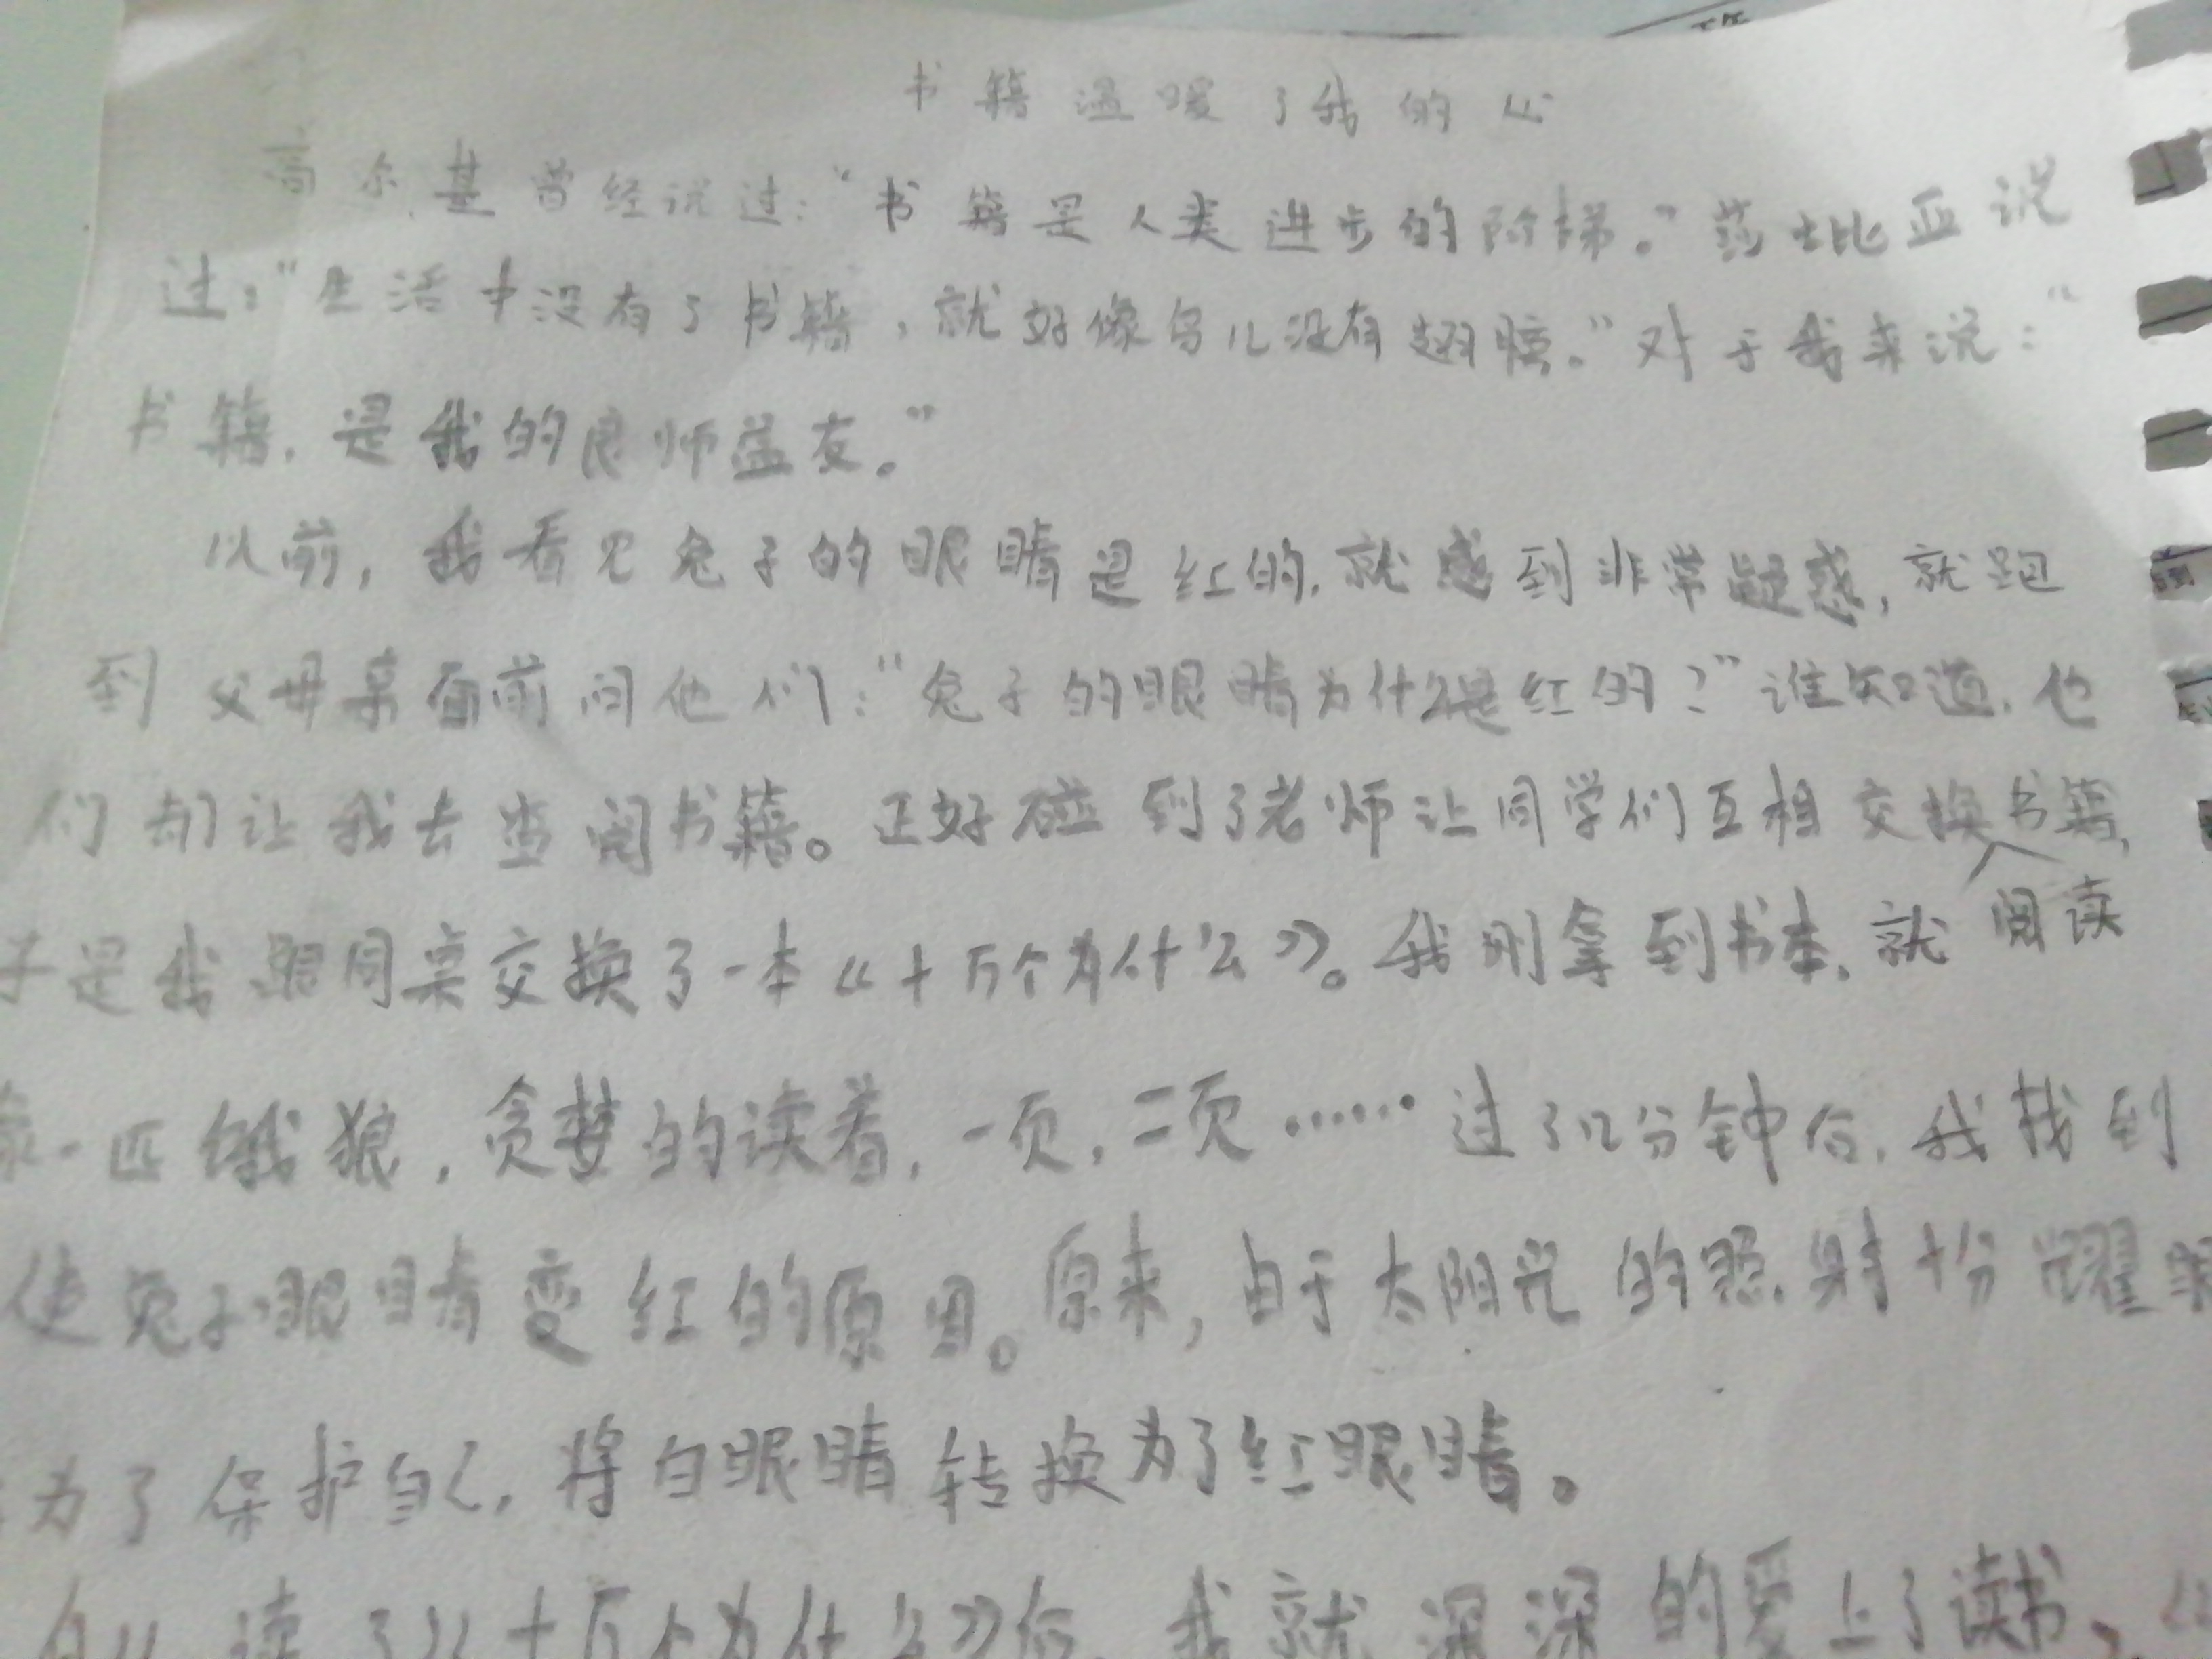 书籍温暖了我的心
高尔基曾经说过：“书籍是人类进步的阶梯。”莎士比亚说
过：“生活中没有了书籍，就好像鸟儿没有翅膀。”对于我来说：“
书籍，是我的良师益友。”
以前，我看见兔子的眼睛是红的，就感到非常疑惑，就跑
到父母亲面前问他们：“兔子的眼睛为什么是红的？”谁知道，他
们却让我去查阅书籍。正好碰到了老师让同学们互相交换书籍，
于是我跟同桌交换了一本《十万个为什么》。我刚拿到书本，就阅读
像一匹饿狼，贪婪的读着，一页，二页……过了12分钟后，我找到
使兔子眼睛变红的原因。原来，由于太阳光的照射十分耀眼
为了保护自己，将白眼睛转换为了红眼睛。
自从读了《十万个为什么》后，我就深深的爱上了读书，